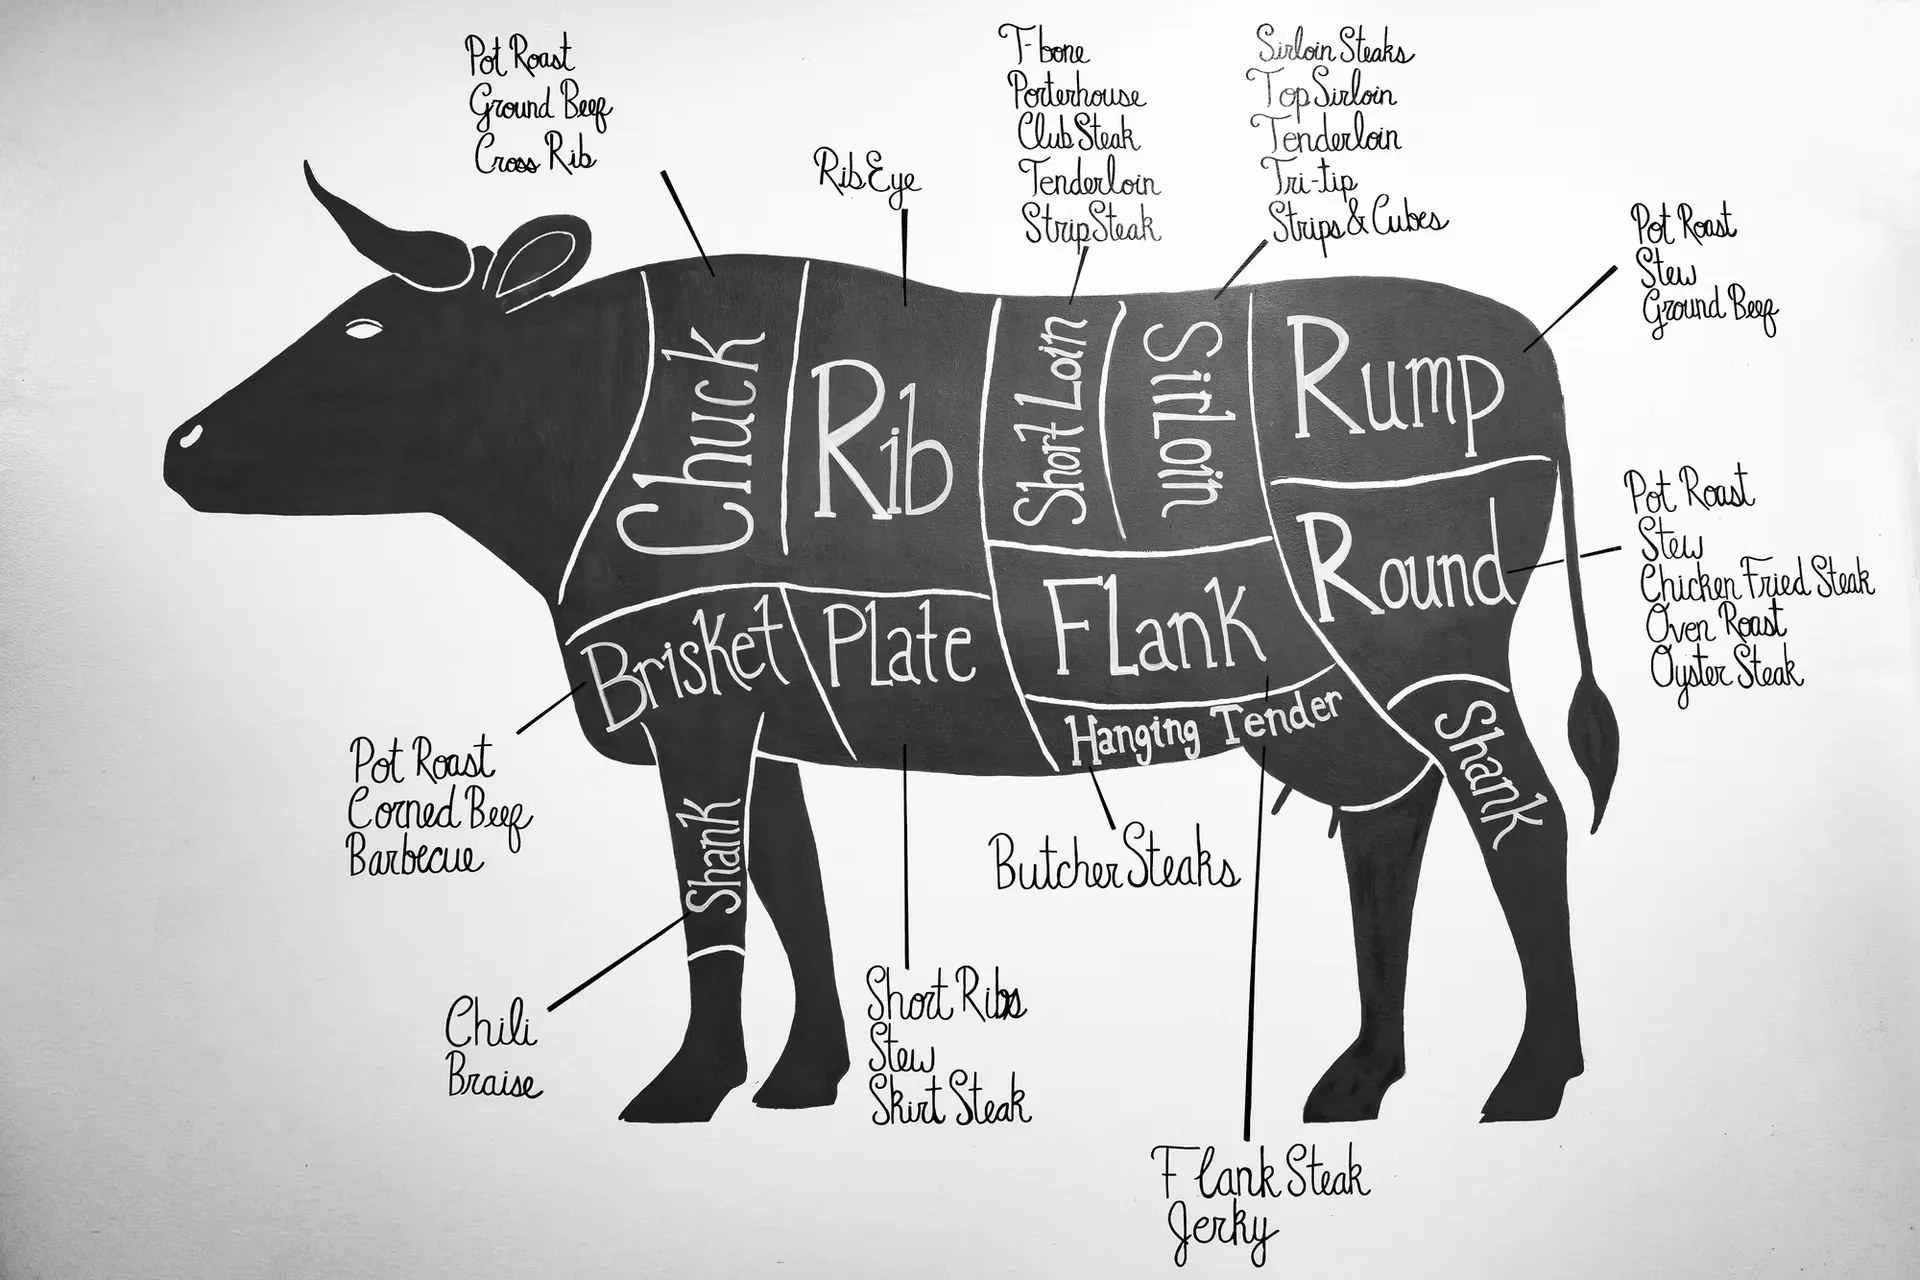 Pot Roast
Ground Beef
Cross Rib
Rib Eye
T-bone
Porterhouse
Club Steak
Tenderloin
Strip Steak
Sirloin Steaks
Top Sirloin
Tenderloin
Tri-tip
Strips & Cubes
Pot Roast
Stew
Ground Beef
Chuck
Rib
Short Loin
SirLoin
Rump
Round
Pot Roast
Stew
Chicken Fried Steak
Oven Roast
Oyster Steak
Brisket
Plate
Flank
Hanging Tender
Shank
Shank
Pot Roast
Corned Beef
Barbecue
Butcher Steaks
Chili
Braise
Short Ribs
Stew
Skirt Steak
Flank Steak
Jerky